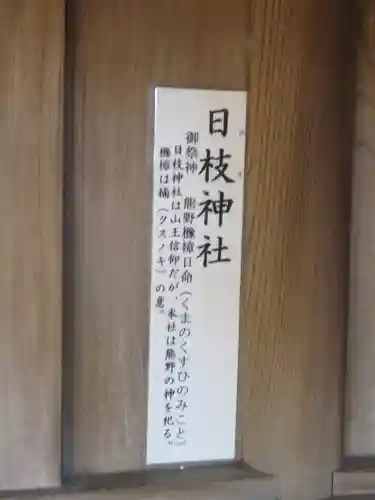 日枝神社
ひえ
御祭神 熊野櫲樟日命(くまのくすひのみこと)
日枝神社は山王信仰だが、本社は熊野の神を祀る。
櫲樟は楠(クスノキ)の意。